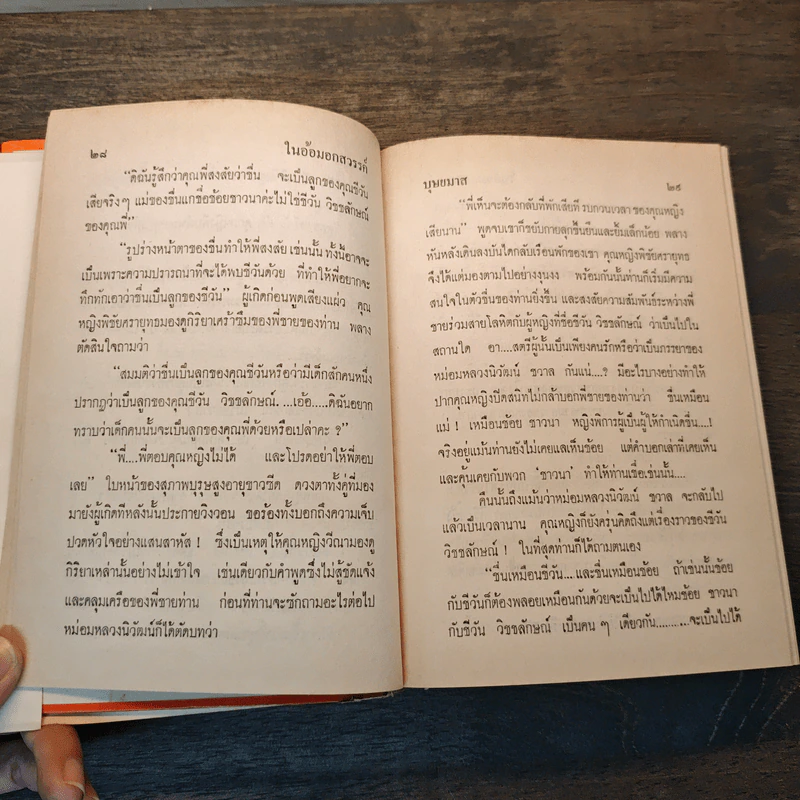 ๒๘ ในอ้อมอกสวรรค์
“ดิฉันรู้สึกว่าคุณพี่สงสัยว่าชื่น จะเป็นลูกของคุณชีวัน
เสียจริงๆ แม่ของชื่นแกชื่อช้อยชาวนาค่ะไม่ใช่ชีวัน วิชชลักษณ์
ของคุณพี่”
“รูปร่างหน้าตาของชื่นทำให้พี่สงสัยเช่นนั้น ทั้งนี้อาจจะ
เป็นเพราะความปรารถนาที่จะได้พบชีวันด้วย ที่ทำให้พี่อยากจะ
ทึกทักเอาว่าชื่นเป็นลูกของชีวัน” ผู้เกิดก่อนพูดเสียงแผ่ว คุณ
หญิงพิชัยศรายุทธมองดูกิริยาเศร้าซึมของพี่ชายของท่าน พลาง
ตัดสินใจถามว่า
“สมมติว่าชื่นเป็นลูกของคุณชีวันหรือว่ามีเด็กสักคนหนึ่ง
ปรากฏว่าเป็นลูกของคุณชีวัน วิชชลักษณ์....เอ้อ.....ดิฉันอยาก
ทราบว่าเด็กคนนั้นจะเป็นลูกของคุณพี่ด้วยหรือเปล่าคะ ?”
“พี่....พี่ตอบคุณหญิงไม่ได้ และโปรดอย่าให้พี่ตอบ
เลย” ใบหน้าของสุภาพบุรุษสูงอายุขาวซีด ดวงตาทั้งคู่ที่มอง
มายังผู้เกิดทีหลังนั้นประกายวิงวอน ขอร้องทั้งบอกถึงความเจ็บ
ปวดหัวใจอย่างแสนสาหัส ! ซึ่งเป็นเหตุให้คุณหญิงวีณามองดู
กิริยาเหล่านั้นอย่างไม่เข้าใจ เช่นเดียวกับคำพูดซึ่งไม่สู้ชัดแจ้ง
และคลุมเครือของพี่ชายท่าน ก่อนที่ท่านจะซักถามอะไรต่อไป
หม่อมหลวงนิวัฒน์ก็ได้ตัดบทว่า
บุษยมาส ๒๙
“พี่เห็นจะต้องกลับที่พักเสียที รบกวนเวลาของคุณหญิง
เสียนาน” พูดจบเขาก็ขยับกายลุกขึ้นยืนและยิ้มเล็กน้อย พลาง
หันหลังเดินลงบันไดกลับเรือนพักของเขา คุณหญิงพิชัยศรายุทธ
จึงได้แต่มองตามไปอย่างงุนงง พร้อมกันนั้นท่านก็เริ่มมีความ
สนใจในตัวชื่นของท่านยิ่งขึ้น และสงสัยความสัมพันธ์ระหว่างพี่
ชายร่วมสายโลหิตกับผู้หญิงที่ชื่อชีวัน วิชชลักษณ์ ว่าเป็นไปใน
สถานใด อา....สตรีผู้นั้นเป็นเพียงคนรักหรือว่าเป็นภรรยาของ
หม่อมหลวงนิวัฒน์ ชวาล กันแน่....? มีอะไรบางอย่างทำให้
ปากคุณหญิงปิดสนิทไม่กล้าบอกพี่ชายของท่านว่า ชื่นเหมือน
แม่ ! เหมือนช้อย ชาวนา หญิงพิการผู้เป็นผู้ให้กำเนิดชื่น....!
จริงอยู่แม้นท่านยังไม่เคยแลเห็นช้อย แต่คำบอกเล่าที่เคยเห็น
และคุ้นเคยกับพวก ‘ชาวนา’ ทำให้ท่านเชื่อเช่นนั้น....
คืนนั้นถึงแม้นว่าหม่อมหลวงนิวัฒน์ ชวาล จะกลับไป
แล้วเป็นเวลานาน คุณหญิงก็ยังครุ่นคิดถึงแต่เรื่องราวของชีวัน
วิชชลักษณ์ ! ในที่สุดท่านก็ได้ถามตนเอง
“ชื่นเหมือนชีวัน...และชื่นเหมือนช้อย ถ้าเช่นนั้นช้อย
กับชีวันก็ต้องพลอยเหมือนกันด้วยจะเป็นไปได้ไหมช้อย ชาวนา
กับชีวัน วิชชลักษณ์ เป็นคนๆ เดียวกัน..........จะเป็นไปได้